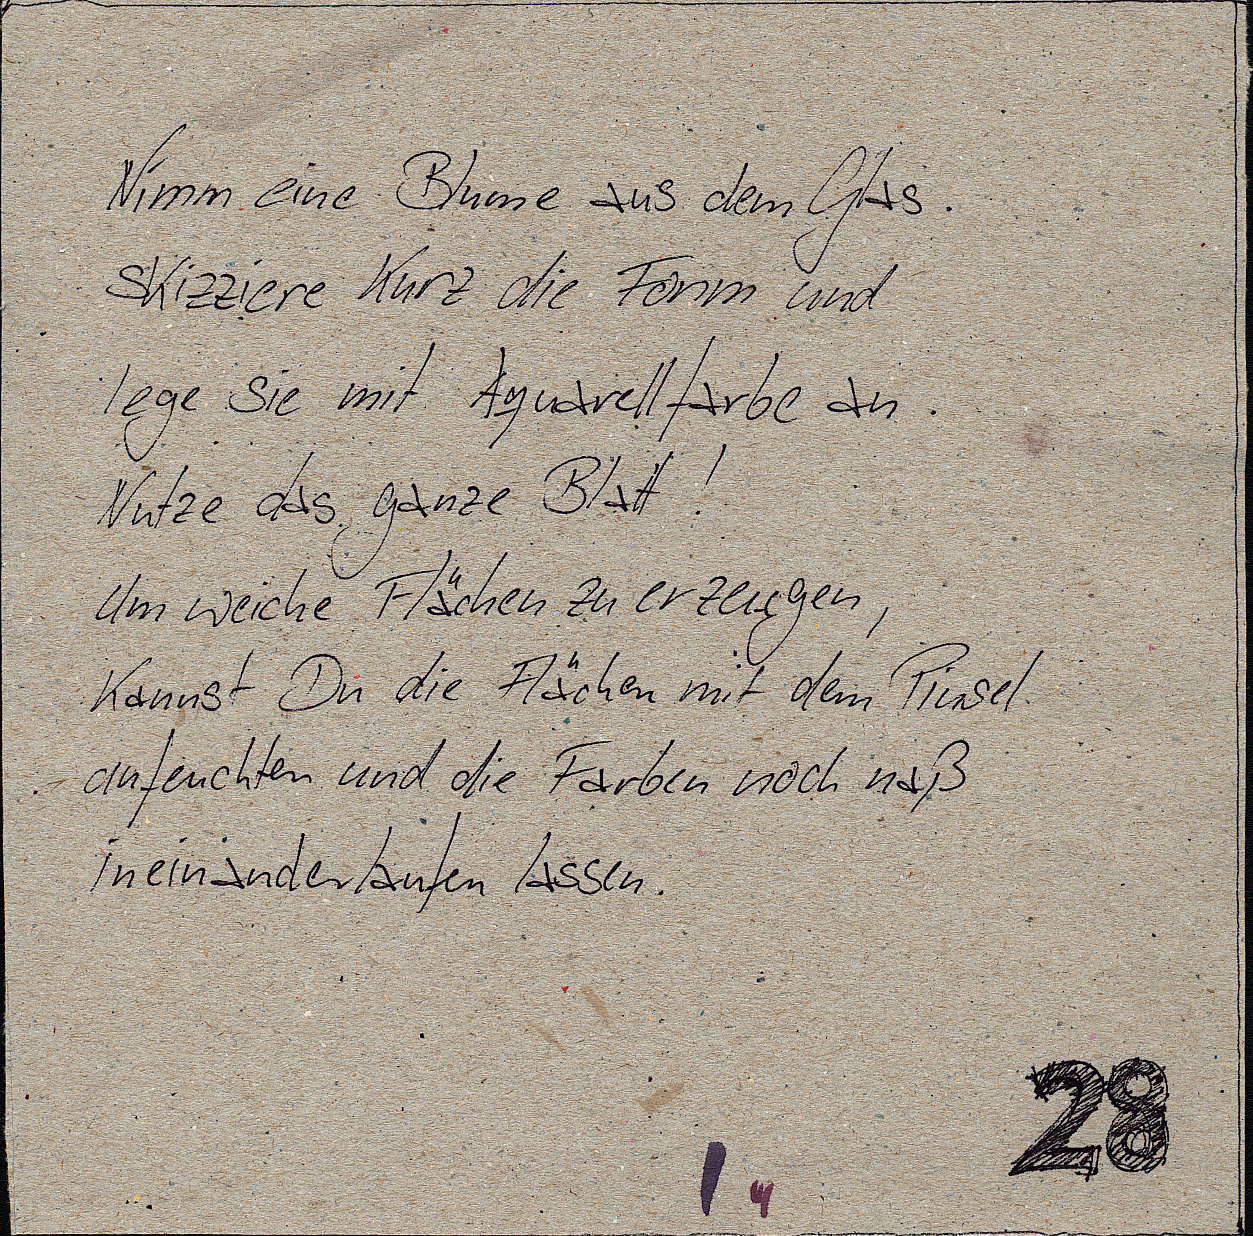 Nimm eine Blume aus dem Glas.
Skizziere kurz die Form und
lege Sie mit Aquarellfarbe an.
Nutze das ganze Blatt!
Um weiche Flächen zu erzeugen,
kannst Du die Flächen mit dem Pinsel
anfeuchten und die Farben noch naß
ineinanderlaufen lassen.
28